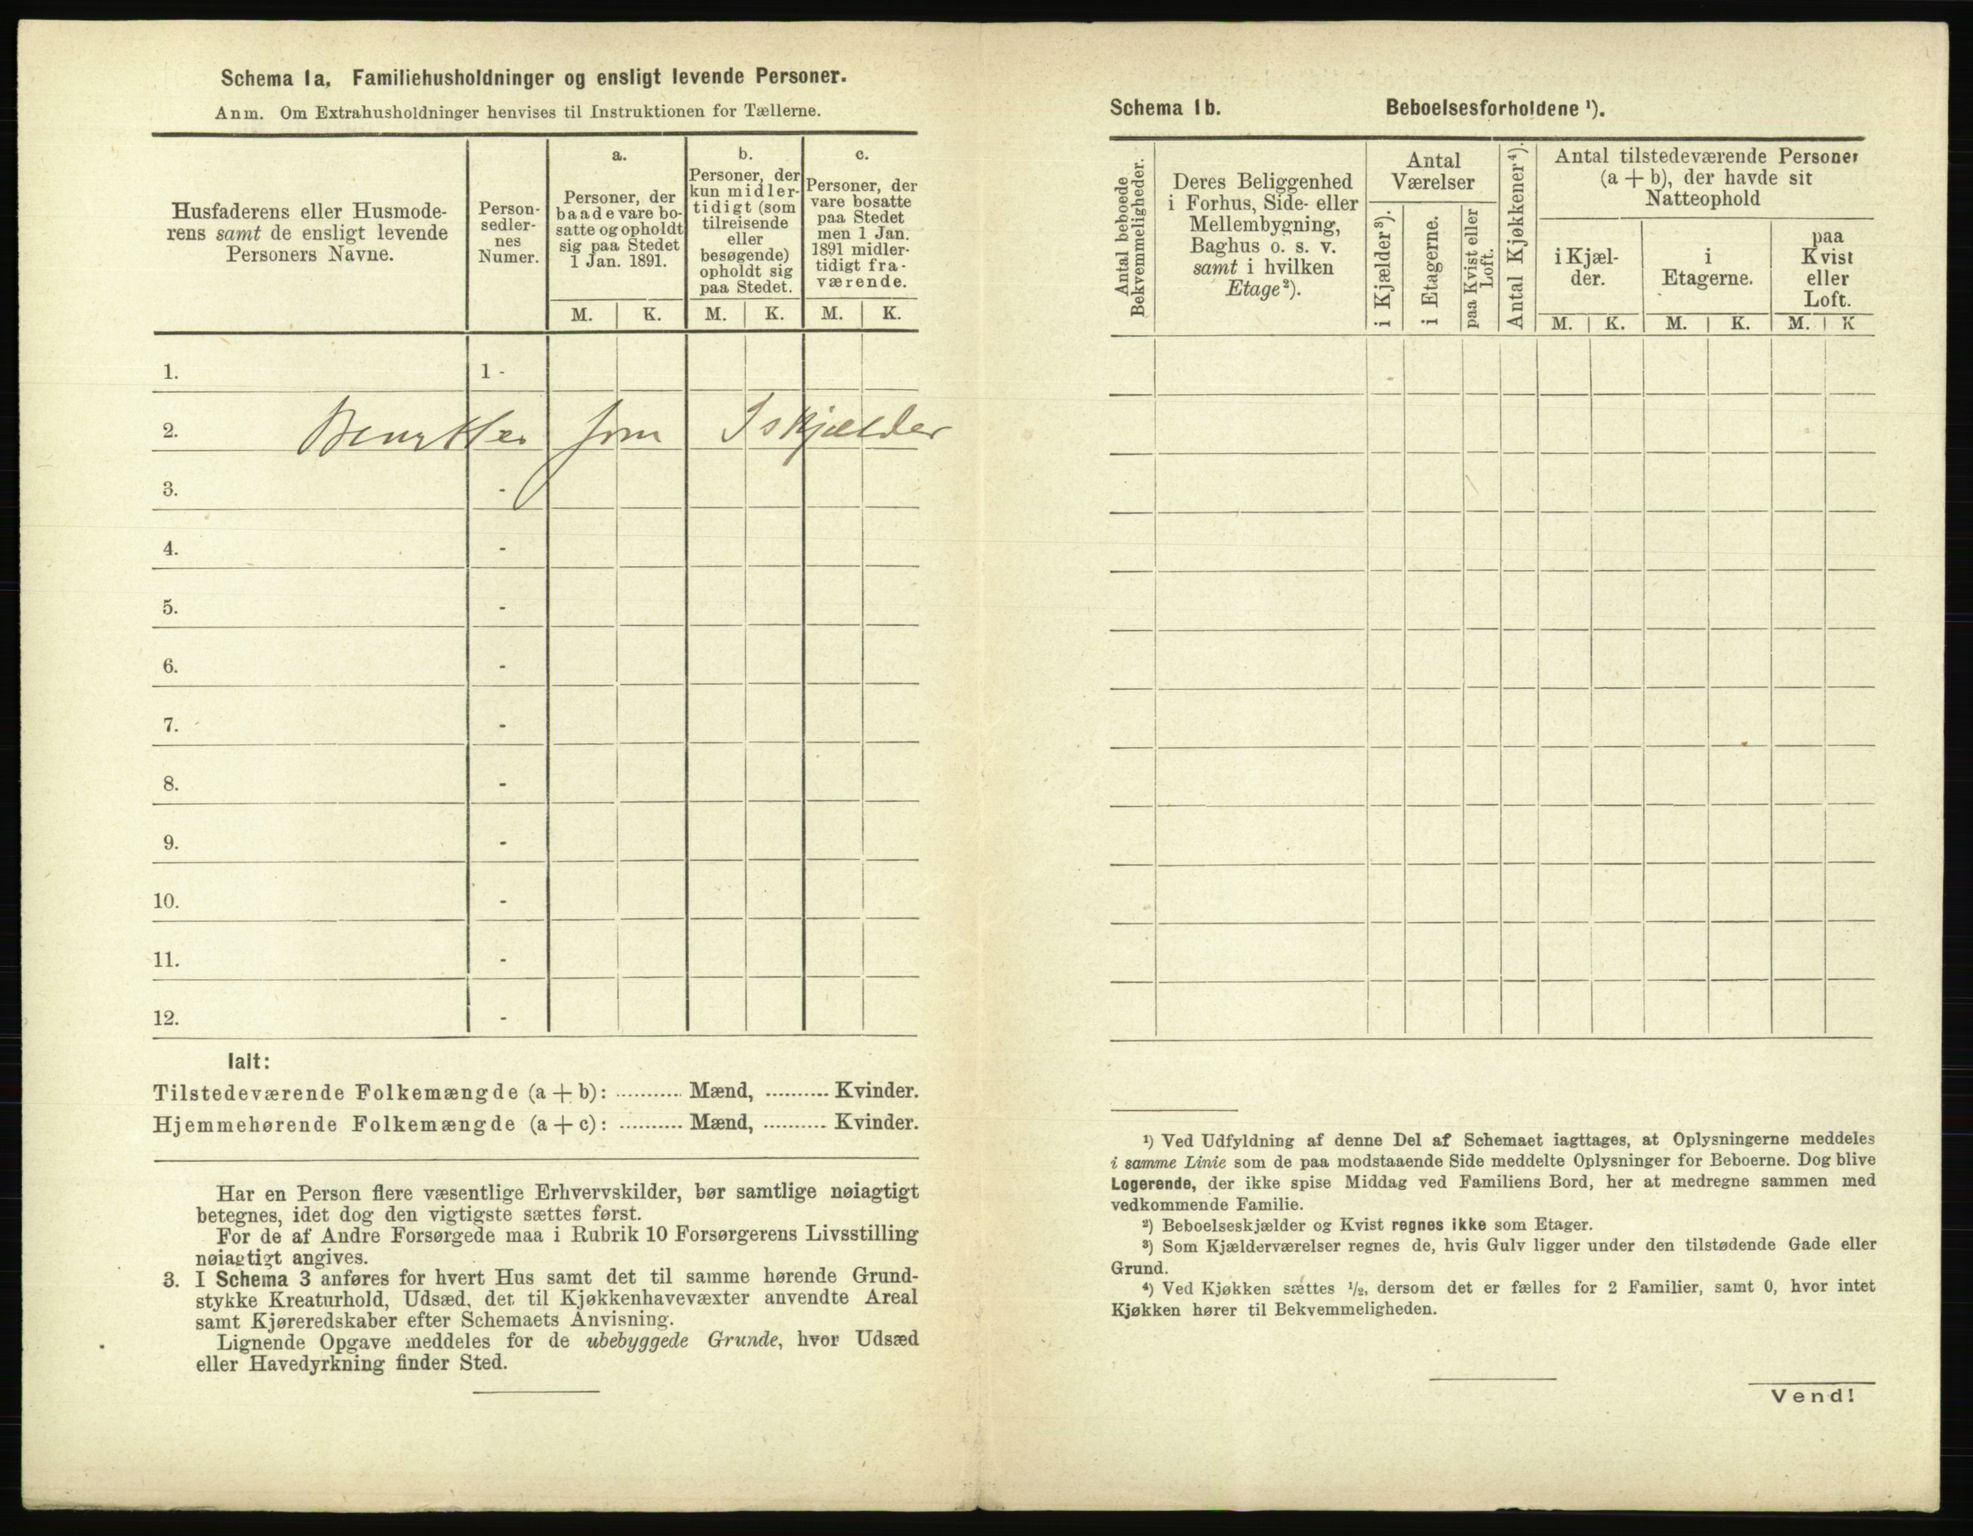 Schema 1a. Familiehusholdninger og ensligt levende Personer.
Anm. Om Extrahusholdninger henvises til Instruktionen for Tællerne.
Husfaderens eller Husmode-
rens samt de ensligt levende
Personers Navne.
Person-
sedler-
nes
Numer.
a.
Personer, der
baade vare bo-
satte og opholdt
sig paa Stedet
1 Jan. 1891.
b.
Personer, der
kun midler-
tidigt (som
tilreisende
eller
besøgende)
opholdt sig
paa Stedet.
c.
Personer, der
vare bosatte
paa Stedet
men 1 Jan.
1891 midler-
tidigt fra-
værende.
M. K. M. K. M. K.
1. 1 -
2. Benyttes som Iskjælder
3. -
4. -
5. -
6. -
7. -
8. -
9. -
10. -
11. -
12. -
Ialt:
Tilstedeværende Folkemængde (a + b): .......... Mænd, .......... Kvinder.
Hjemmehørende Folkemængde (a + c): .......... Mænd, .......... Kvinder.
Har en Person flere væsentlige Erhvervskilder, bør samtlige nøiagtigt
betegnes, idet dog den vigtigste sættes først.
For de af Andre Forsørgede maa i Rubrik 10 Forsørgerens Livsstilling
nøiagtigt angives.
3. I Schema 3 anføres for hvert Hus samt det til samme hørende Grund-
stykke Kreaturhold, Udsæd, det til Kjøkkenhavevæxter anvendte Areal
samt Kjøreredskaber efter Schemaets Anvisning.
Lignende Opgave meddeles for de ubebyggede Grunde, hvor Udsæd
eller Havedyrkning finder Sted.
Schema 1b. Beboelsesforholdene ¹).
Antal beboede
Bekvemmeligheder.
Deres Beliggenhed
i Forhus, Side- eller
Mellembygning,
Baghus o. s. v.
samt i hvilken
Etage²).
Antal
Værelser
i Kjælder³).
i Etagerne.
paa Kvist eller
Loft.
Antal Kjøkkener⁴).
Antal tilstedeværende Personer
(a + b), der havde sit
Natteophold
i Kjæl-
der.
i
Etagerne.
paa
Kvist
eller
Loft.
M. K. M. K. M. K
¹) Ved Udfyldning af denne Del af Schemaet iagttages, at Oplysningerne meddeles
i samme Linie som de paa modstaaende Side meddelte Oplysninger for Beboerne. Dog blive
Logerende, der ikke spise Middag ved Familiens Bord, her at medregne sammen med
vedkommende Familie.
²) Beboelseskjælder og Kvist regnes ikke som Etager.
³) Som Kjælderværelser regnes de, hvis Gulv ligger under den tilstødende Gade eller
Grund.
⁴) Ved Kjøkken sættes ½, dersom det er fælles for 2 Familier, samt 0, hvor intet
Kjøkken hører til Bekvemmeligheden.
Vend!